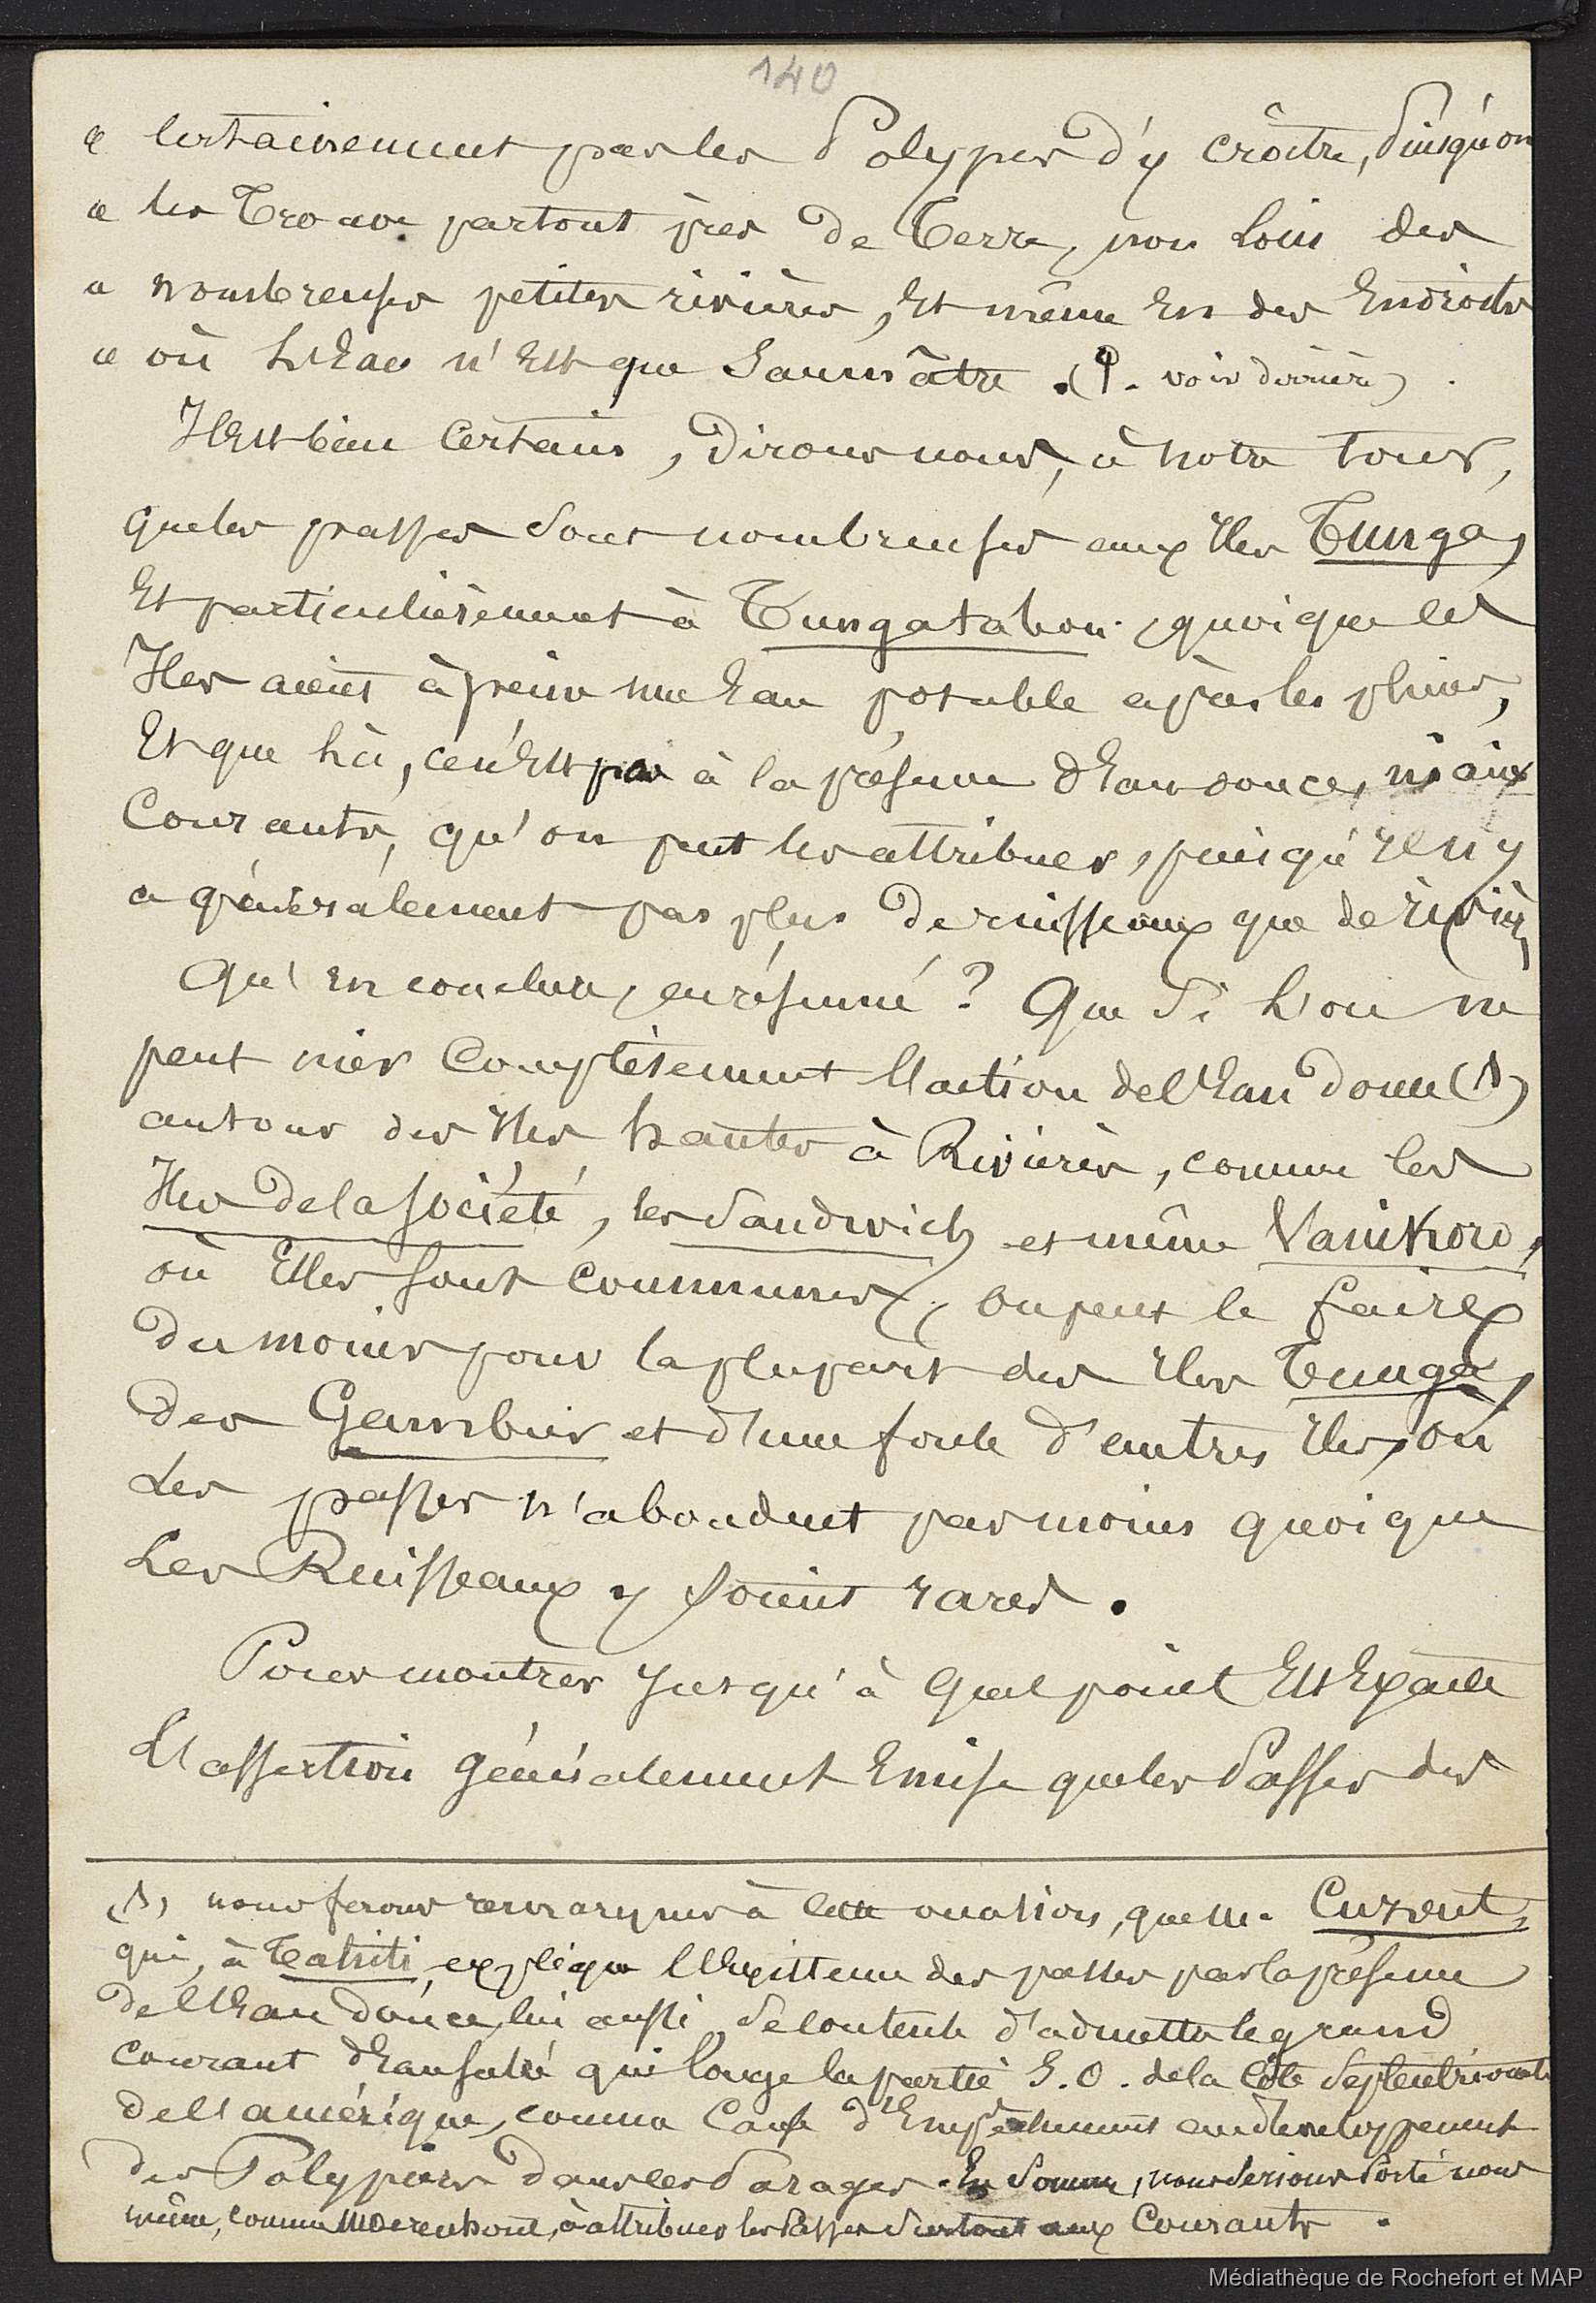 140
« certainement pas les Polypes d'y croître, Puisqu'on
« les Trouve partout près de Terre, non loin des
« nombreuses petites rivières, Et même En des Endroits
« où L'Eau n'Est que Saumâtre. ( . voir derrière)
Il Est bien Certain, Dirons nous, à notre tour,
que les passes sont nombreuses aux Iles Tunga,
Et particulièrement à Tungatabou, quoique les
Iles aient à peine une Eau potable après les pluies,
Et que là, ce n'Est pas à la présence d'Eau douce, ni aux
Courants, qu'on peut les attribuer, puisqu'Il n'y
a généralement pas plus de ruisseaux que de rivièr,
Qu'En conclure, en résumé ? Que Si L'on ne
peut nier Complètement L'action de l'Eau Douce (1)
autour des Iles hautes à Rivières, comme les
Iles De la Société, les Sandwich et même Vanikoro,
où Elles sont communes, on peut le faire
Du moins pour la plupart des Iles Tunga,
Des Gambier et d'une foule d'autres Iles, où
Les passes n'abondent pas moins quoique
Les Ruisseaux y soient rares.
Pour montrer Jusqu'à Quel point Est Exacte
L'assertion généralement Emise que les Passes des
(1) nous ferons remarquer à cette occasion, que M. Cuzent,
qui, à Tahiti, explique l'Existence des passes par la présence
De l'Eau douce, lui aussi, Se contente d'admettre le grand
courant d'Eau salée qui longe la partie S. O. de la Côte Septentrionale
de L'amérique, comme Cause d'Empêchement au développement
des Polypiers Dans les Parages. En Somme, nous Serions Porté nous
même, comme Moerenhout, à attribuer les Passes Surtout aux Courants.
Médiathèque de Rochefort et MAP